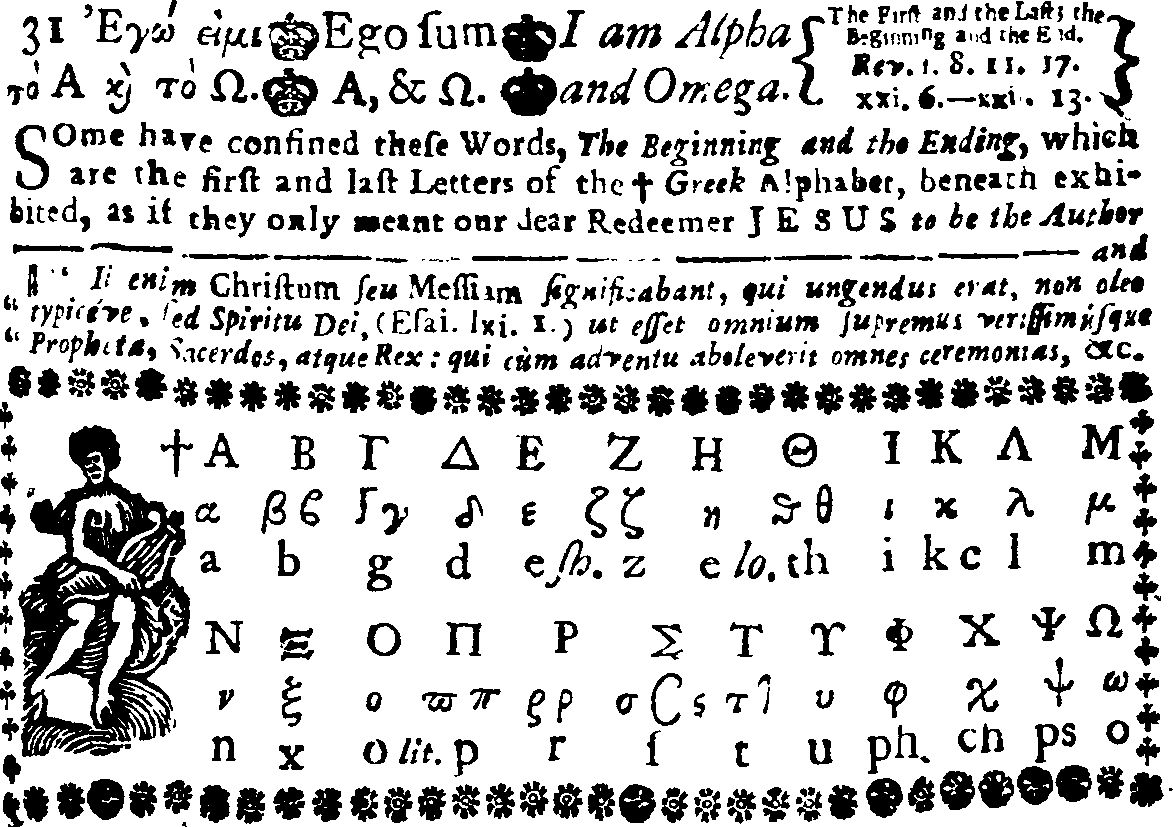 31 Ἐγώ εἰμι Ego ſum I am Alpha
τὸ Α κỳ τὸ Ω. A, & Ω. and Omega.
The Firſt and the Laſt; the
Beginning and the End.
Rev. 1. 8. 11. 17.
xxi. 6.—xxi. 13.
SOme have confined theſe Words, The Beginning and the Ending, which
are the firſt and laſt Letters of the † Greek Alphabet, beneath exhi-
bited, as if they only meant our dear Redeemer JESUS to be the Author
and
“ Ii enim Chriſtum ſeu Meſſiam ſignificabant, qui ungendus erat, non oleo
“ typicéve, ſed Spiritu Dei, (Eſai. lxi. 1.) ut eſſet omnium ſupremus veriſſimúſque
“ Propheta, Sacerdos, atque Rex: qui cùm adventu aboleverit omnes ceremonias, &c.
† Α Β Γ Δ Ε Ζ Η Θ Ι Κ Λ Μ
α β ϐ ʃ γ δ ε ζ ζ η ϑ θ ι κ λ μ
a b g d e ſh. z e lo. th i k c l m
Ν Ξ Ο Π Ρ Σ Τ Υ Φ Χ Ψ Ω
ν ξ ο ϖ π ϱ ρ σ C ς τ ⁊ υ φ χ ψ ω
n x o lit. p r ſ t u ph ch ps o